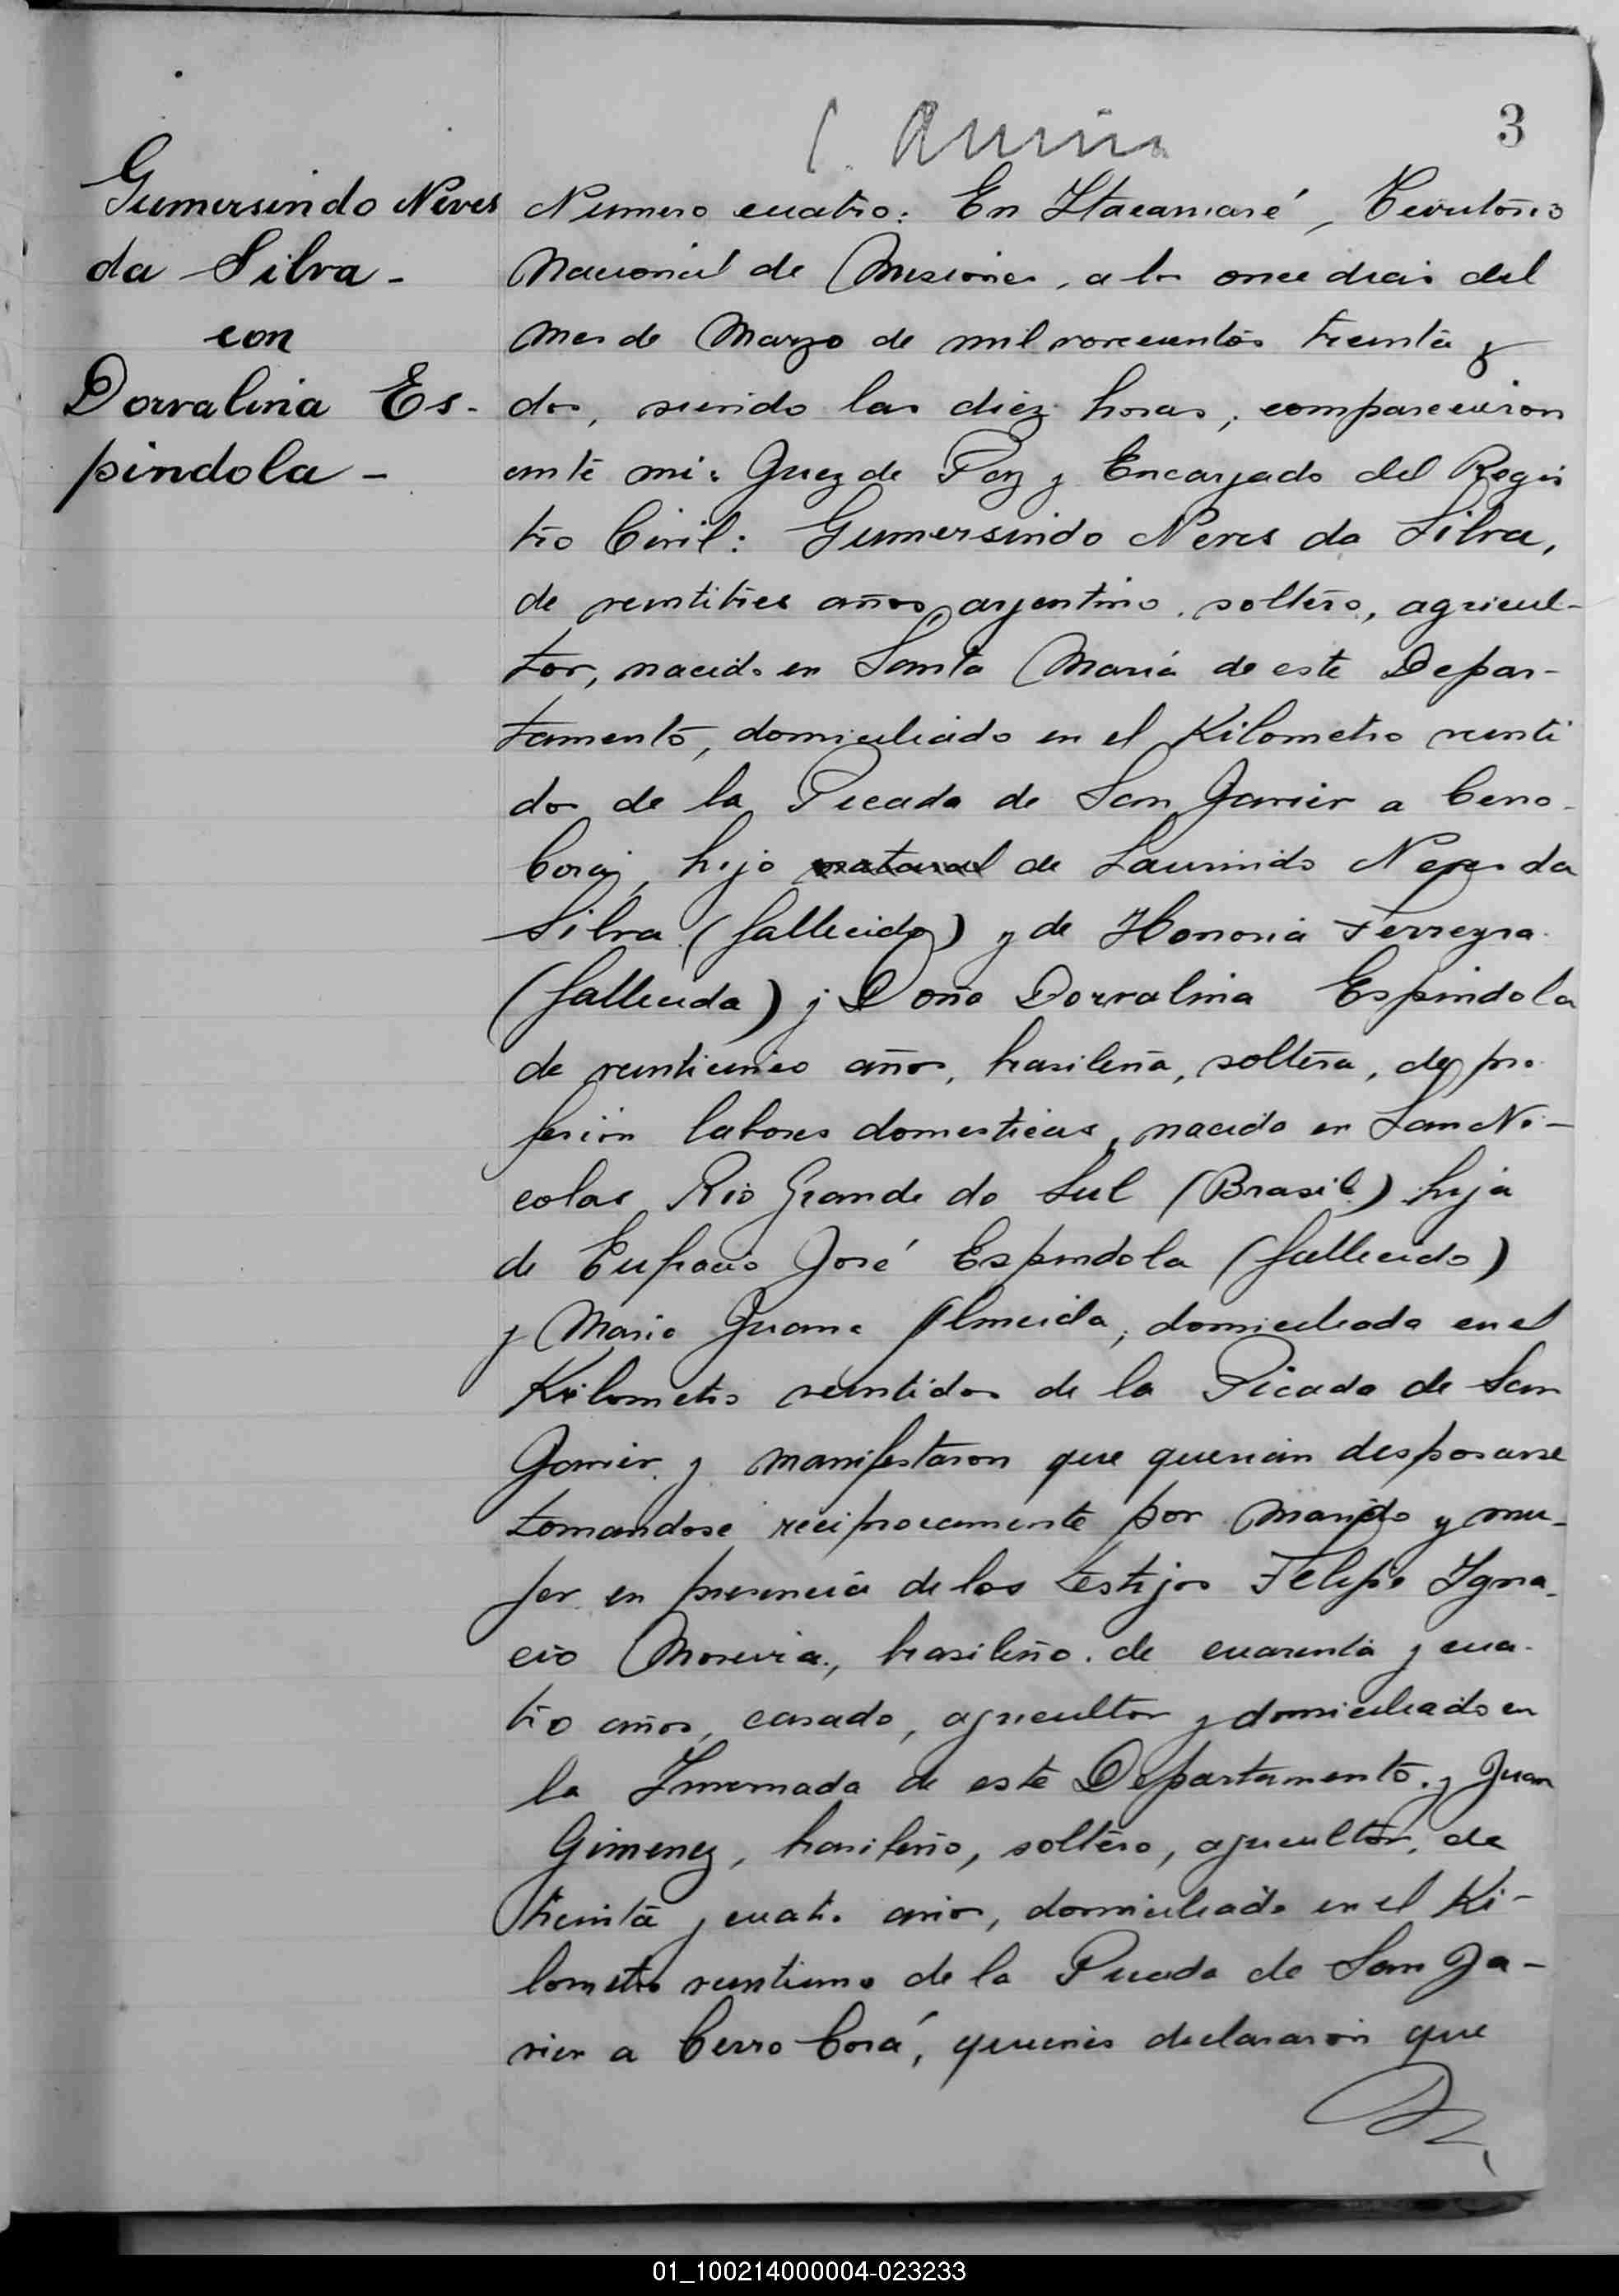 3
Gumersindo Neves
da Silva -
con
Dorvalina Es-
pindola -
Numero cuatro: En Itacaruaré, Territorio
Nacional de Misiones, a los once dias del
mes de Marzo de mil novecientos treinta y
dos, siendo las diez horas, comparecieron
ante mi: Juez de Paz y Encargado del Regis
tro Civil: Gumersindo Neves da Silva,
de veintitres años, argentino, soltero, agricul-
tor, nacido en Santa Maria de este Depar-
tamento, domiciliado en el Kilometro veinti
dos de la Picada de San Javier a Cerro
Corá, hijo natural de Laurindo Neves da
Silva (fallecido) y de Honoria Ferreyra
(fallecida) y Doña Dorvalina Espindola
de veinticinco años, brasileña, soltera, de pro
fesión labores domesticas, nacida en San Ni-
colas Rio Grande do Sul (Brasil) hija
de Eufracio José Espindola (fallecido)
y Maria Juana Almeida, domiciliada en el
Kilometro veintidos de la Picada de San
Javier y manifestaron que querian desposarse
tomandose reciprocamente por marido y mu-
jer en presencia de los testigos Felipe Igna-
cio Moreira, brasileño, de cuarenta y cua-
tro años, casado, agricultor y domiciliado en
la Invernada de este Departamento y Juan
Gimenez, brasileño, soltero, agricultor, de
treinta y cuatro años, domiciliado en el Ki-
lometro veintiuno de la Picada de San Ja-
vier a Cerro Corá, quienes declararon que
01_100214000004-023233